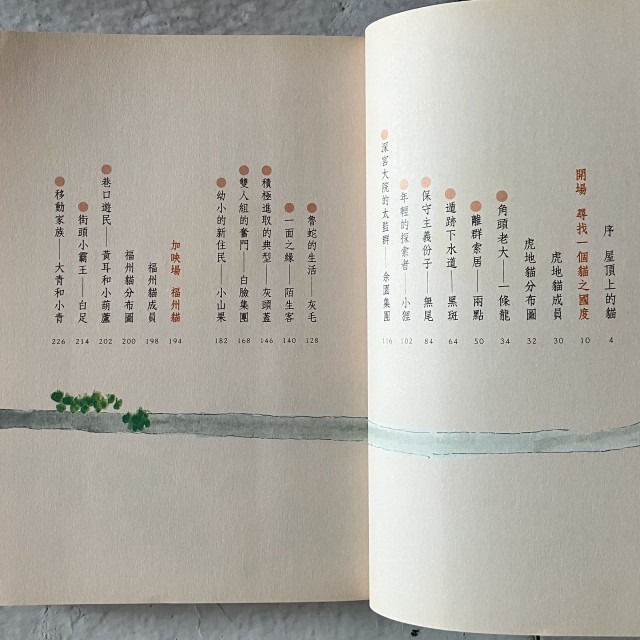 序 屋頂上的貓 4
開場 尋找一個貓之國度 10
虎地貓成員 30
虎地貓分布圖 32
角頭老大——一條龍 34
離群索居——兩點 50
遁跡下水道——黑斑 64
保守主義份子——無尾 84
年輕的探索者——小狸 102
深宮大院的太監群——余園集團 116
魯蛇的生活——灰毛 128
一面之緣——陌生客 140
積極進取的典型——灰頭蓋 146
雙人組的奮鬥——白臉集團 168
幼小的新住民——小山果 182
加映場 福州貓 194
福州貓成員 198
福州貓分布圖 200
巷口遊民——黃耳和小葫蘆 202
街頭小霸王——白足 214
移動家族——大青和小青 226